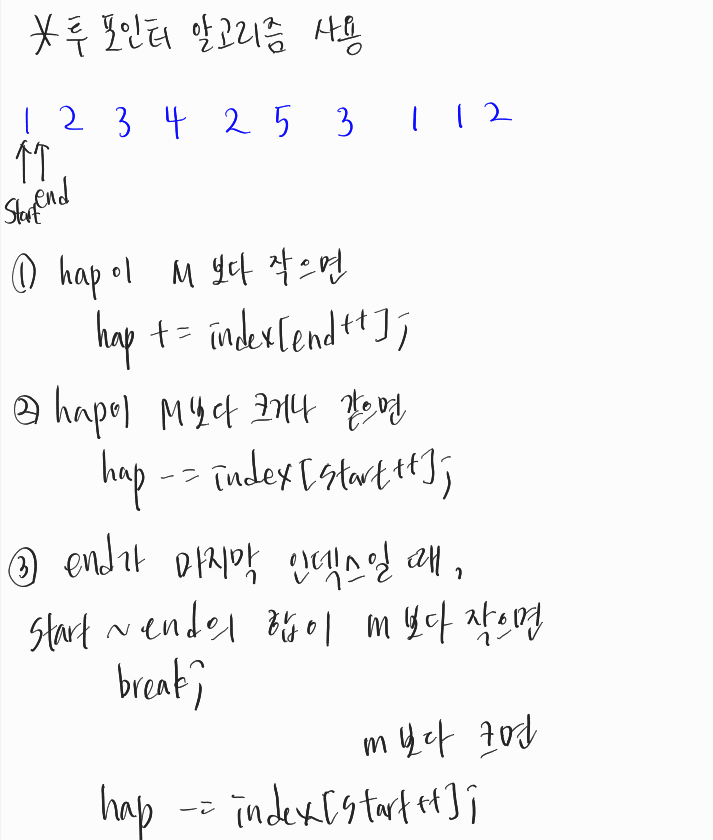 * 투 포인터 알고리즘 사용
1 2 3 4 2 5 3 1 1 2
start end
① hap이 M보다 작으면
hap += index[end++];
② hap이 M보다 크거나 같으면
hap -= index[start++];
③ end가 마지막 인덱스일 때,
start ~ end의 합이 m보다 작으면
break;
m보다 크면
hap -= index[start++];